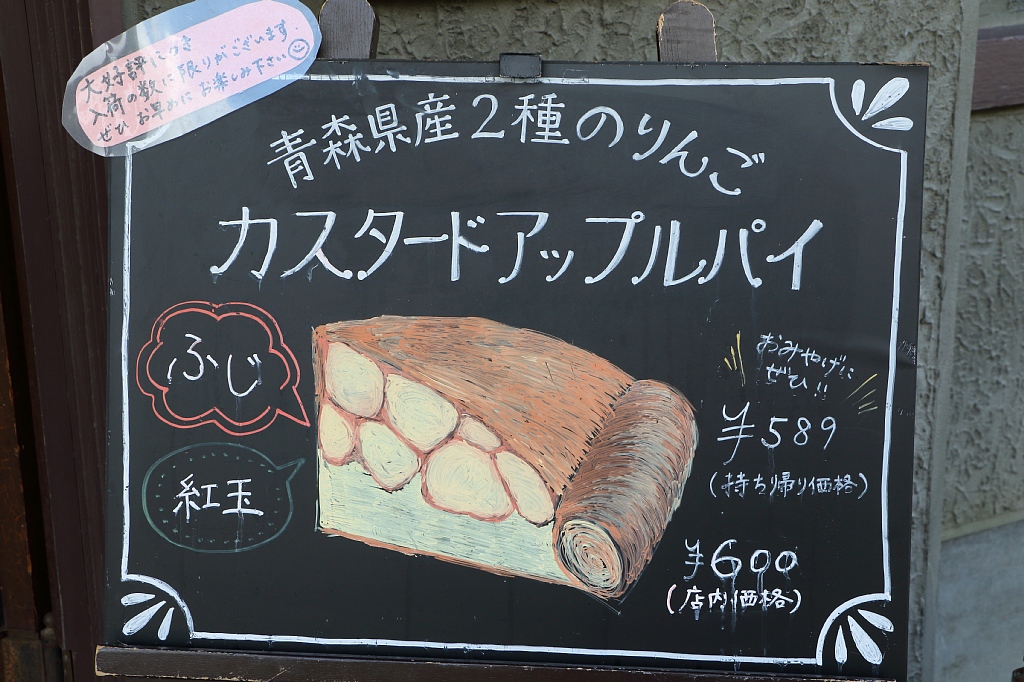 大好評につき
入荷の数に限りがございます
ぜひ お早めに お楽しみ下さい
青森県産2種のりんご
カスタードアップルパイ
ふじ
紅玉
おみやげに
ぜひ!!
¥589
(持ち帰り価格)
¥600
(店内価格)